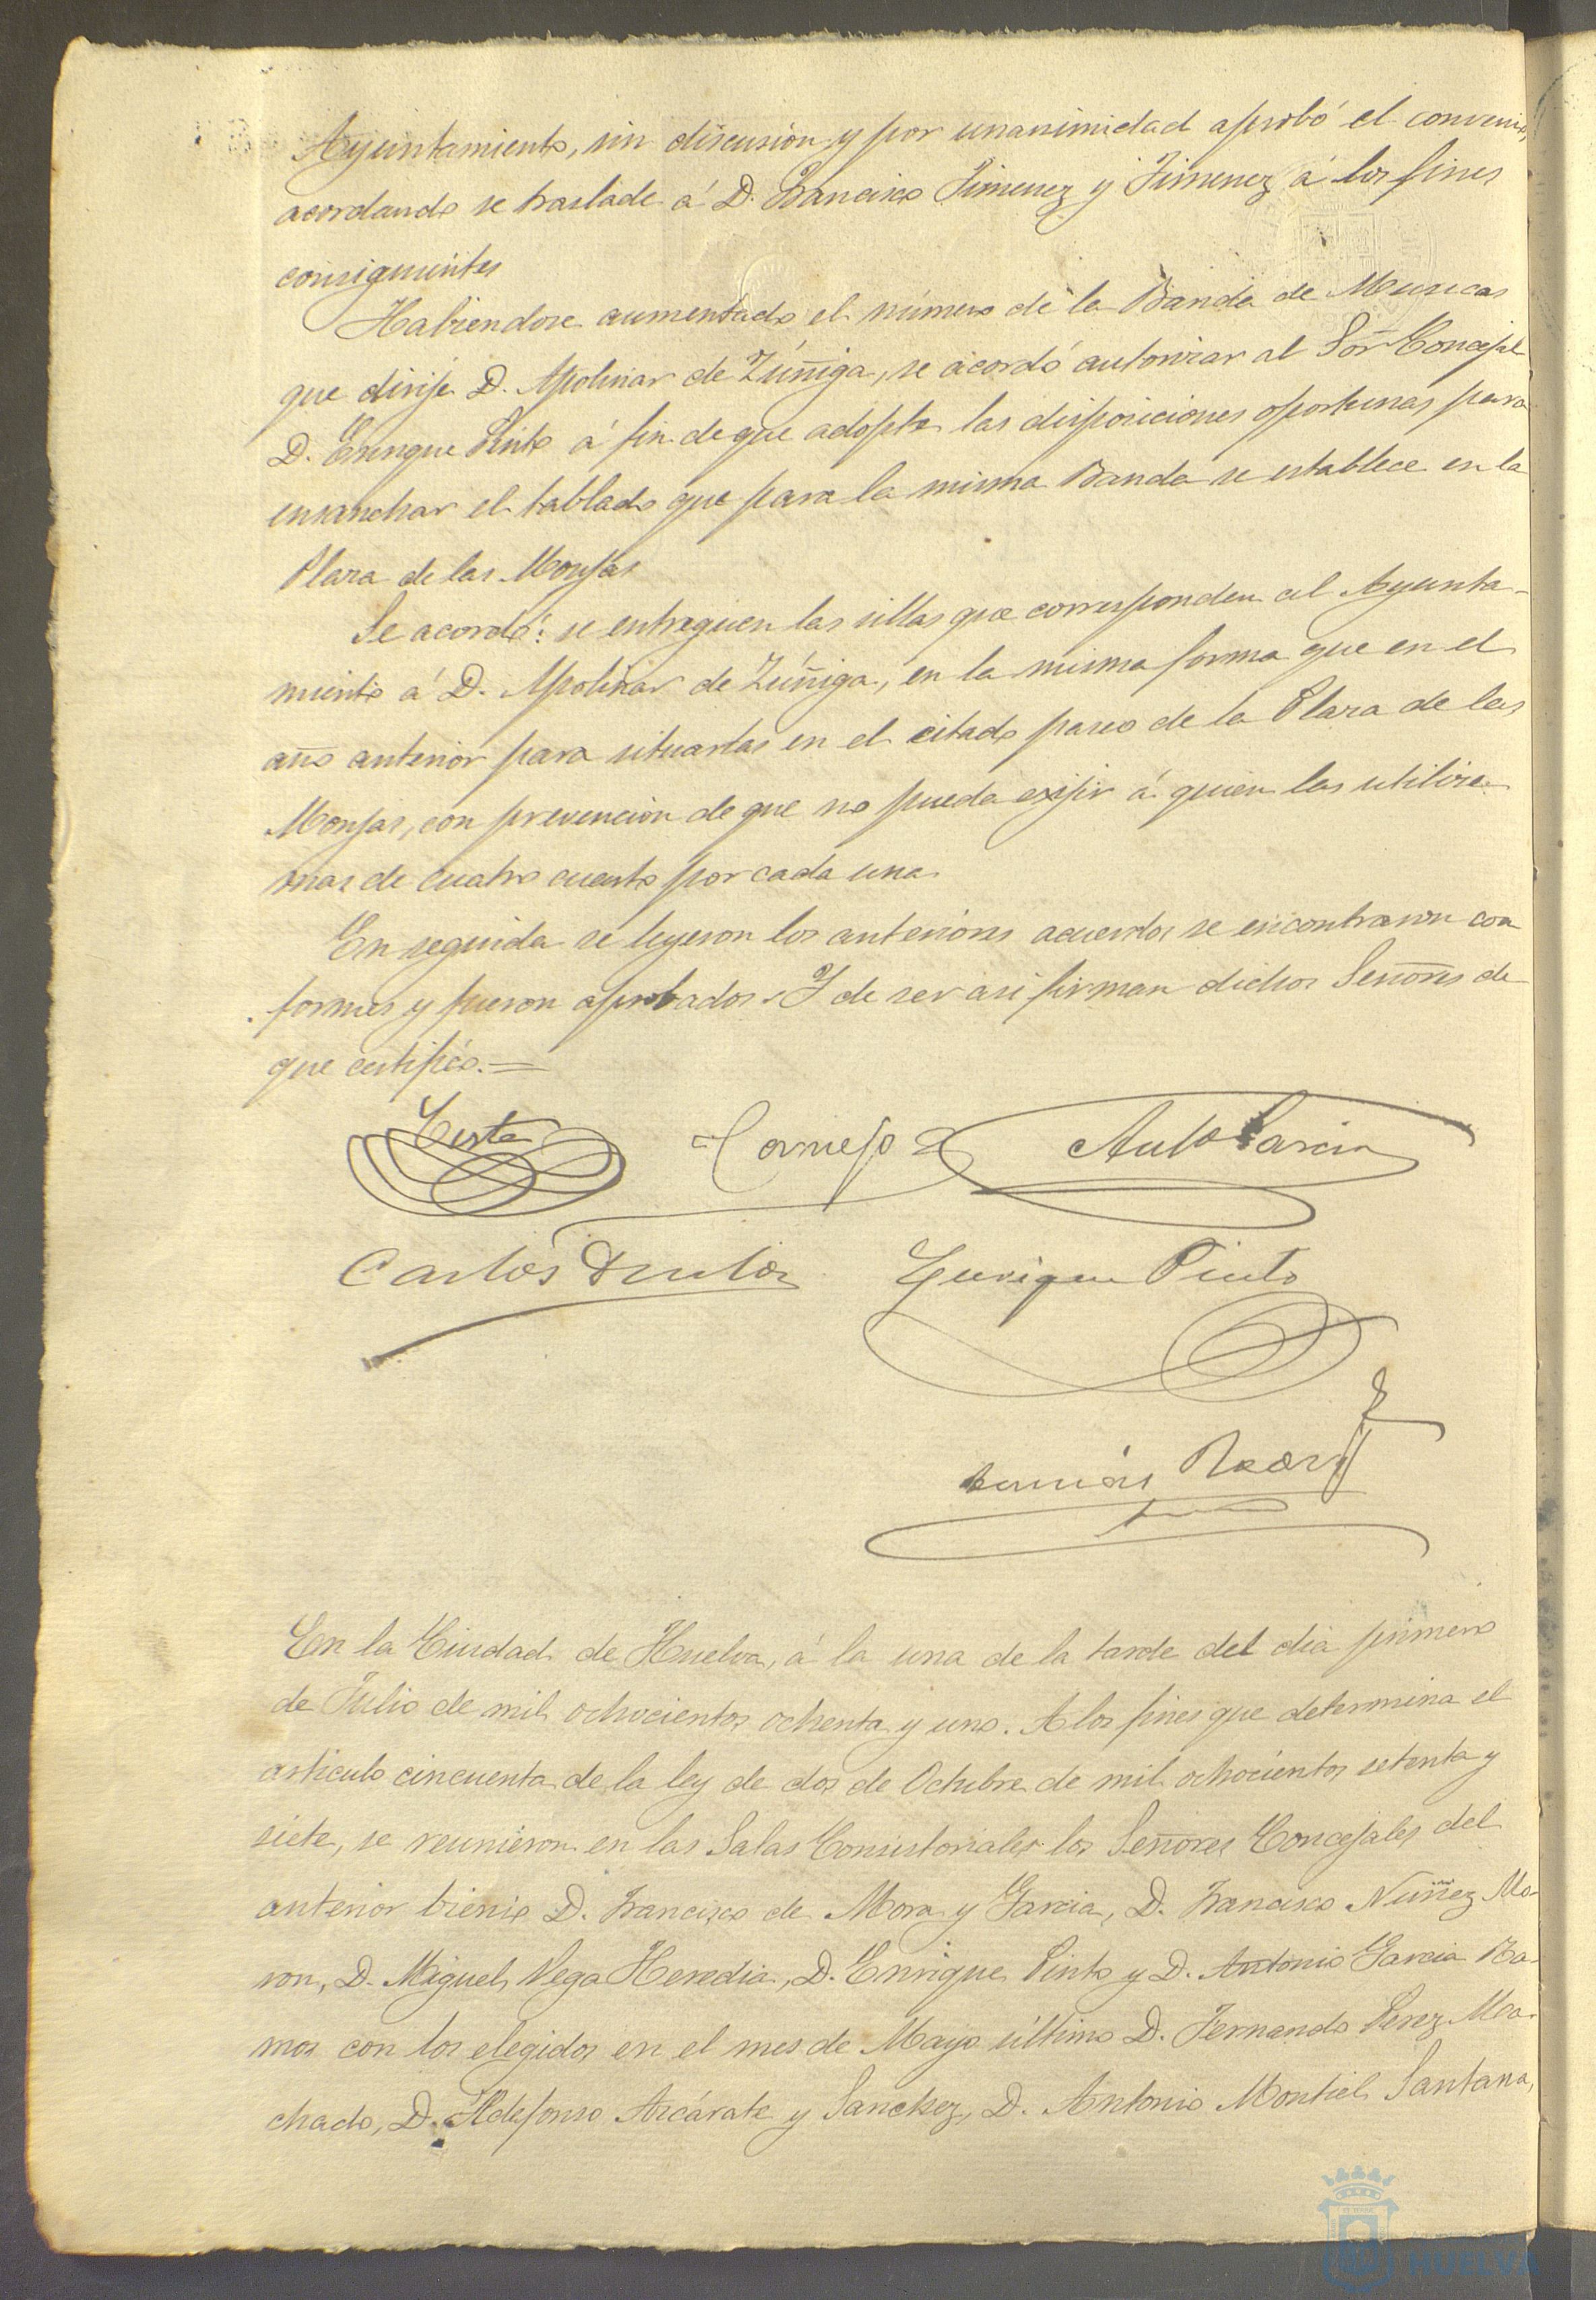 Ayuntamiento, sin discusion y por unanimidad aprobó el convenio,
acordando se traslade á D. Francisco Jimenez y Jimenez á los fines
consiguientes
Habiendose aumentado el número de la Banda de Musicas
que dirije D. Apolinar de Zúñiga, se acordó autorizar al Sor Concejal
D. Enrique Pinto á fin de que adopte las disposiciones oportunas para
ensanchar el tablado que para la misma Banda se establece en la
Plaza de las Monjas
Se acordó: se entreguen las sillas que corresponden al Ayunta-
miento á D. Apolinar de Zúñiga, en la misma forma que en el
año anterior para situarlas en el citado paseo de la Plaza de las
Monjas, con prevencion de que no pueda exijir á quien las utilize
mas de cuatro cuartos por cada una.
En seguida se leyeron los anteriores acuerdos se encontraron con
formes y fueron aprobados. Y de ser asi firman dichos Señores de
que certifico.=
Cornejo Anto Garcia
Carlos Enrique Pinto
En la Ciudad de Huelva, á la una de la tarde del dia primero
de Julio de mil ochocientos ochenta y uno. A los fines que determina el
articulo cincuenta de la ley de dos de Octubre de mil ochocientos setenta y
siete, se reunieron en las Salas Consistoriales los Señores Concejales del
anterior bienio D. Francisco de Mora y Garcia, D. Francisco Nuñez Mo-
ron, D. Miguel Vega Heredia, D. Enrique Pinto y D. Antonio Garcia Ra-
mos con los elegidos en el mes de Mayo último D. Fernando Perez Ma-
chado, D. Ildefonso Azcárate y Sanchez, D. Antonio Montiel Santana,
HUELVA